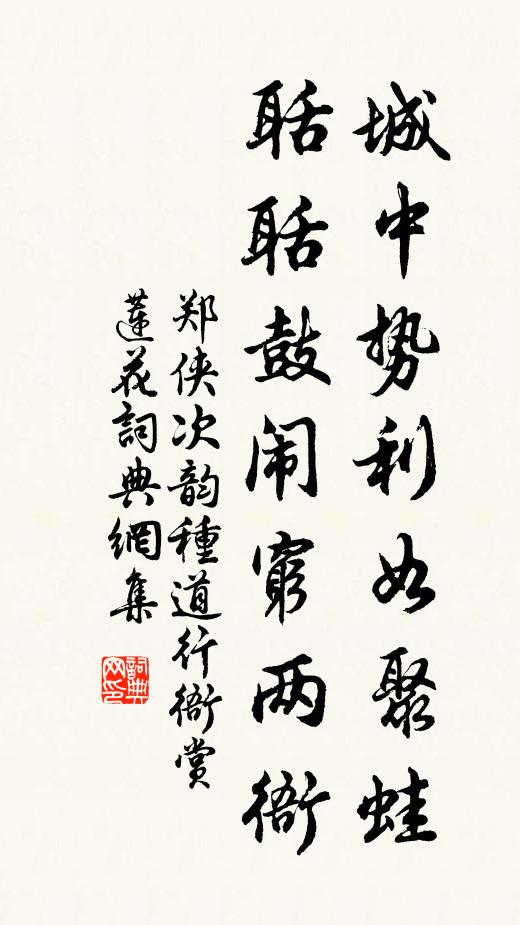 城中势利如聚蛙
聒聒鼓闹穷两衙
郑侠次韵種道行衙赏
莲花詞典網集
詞典网印